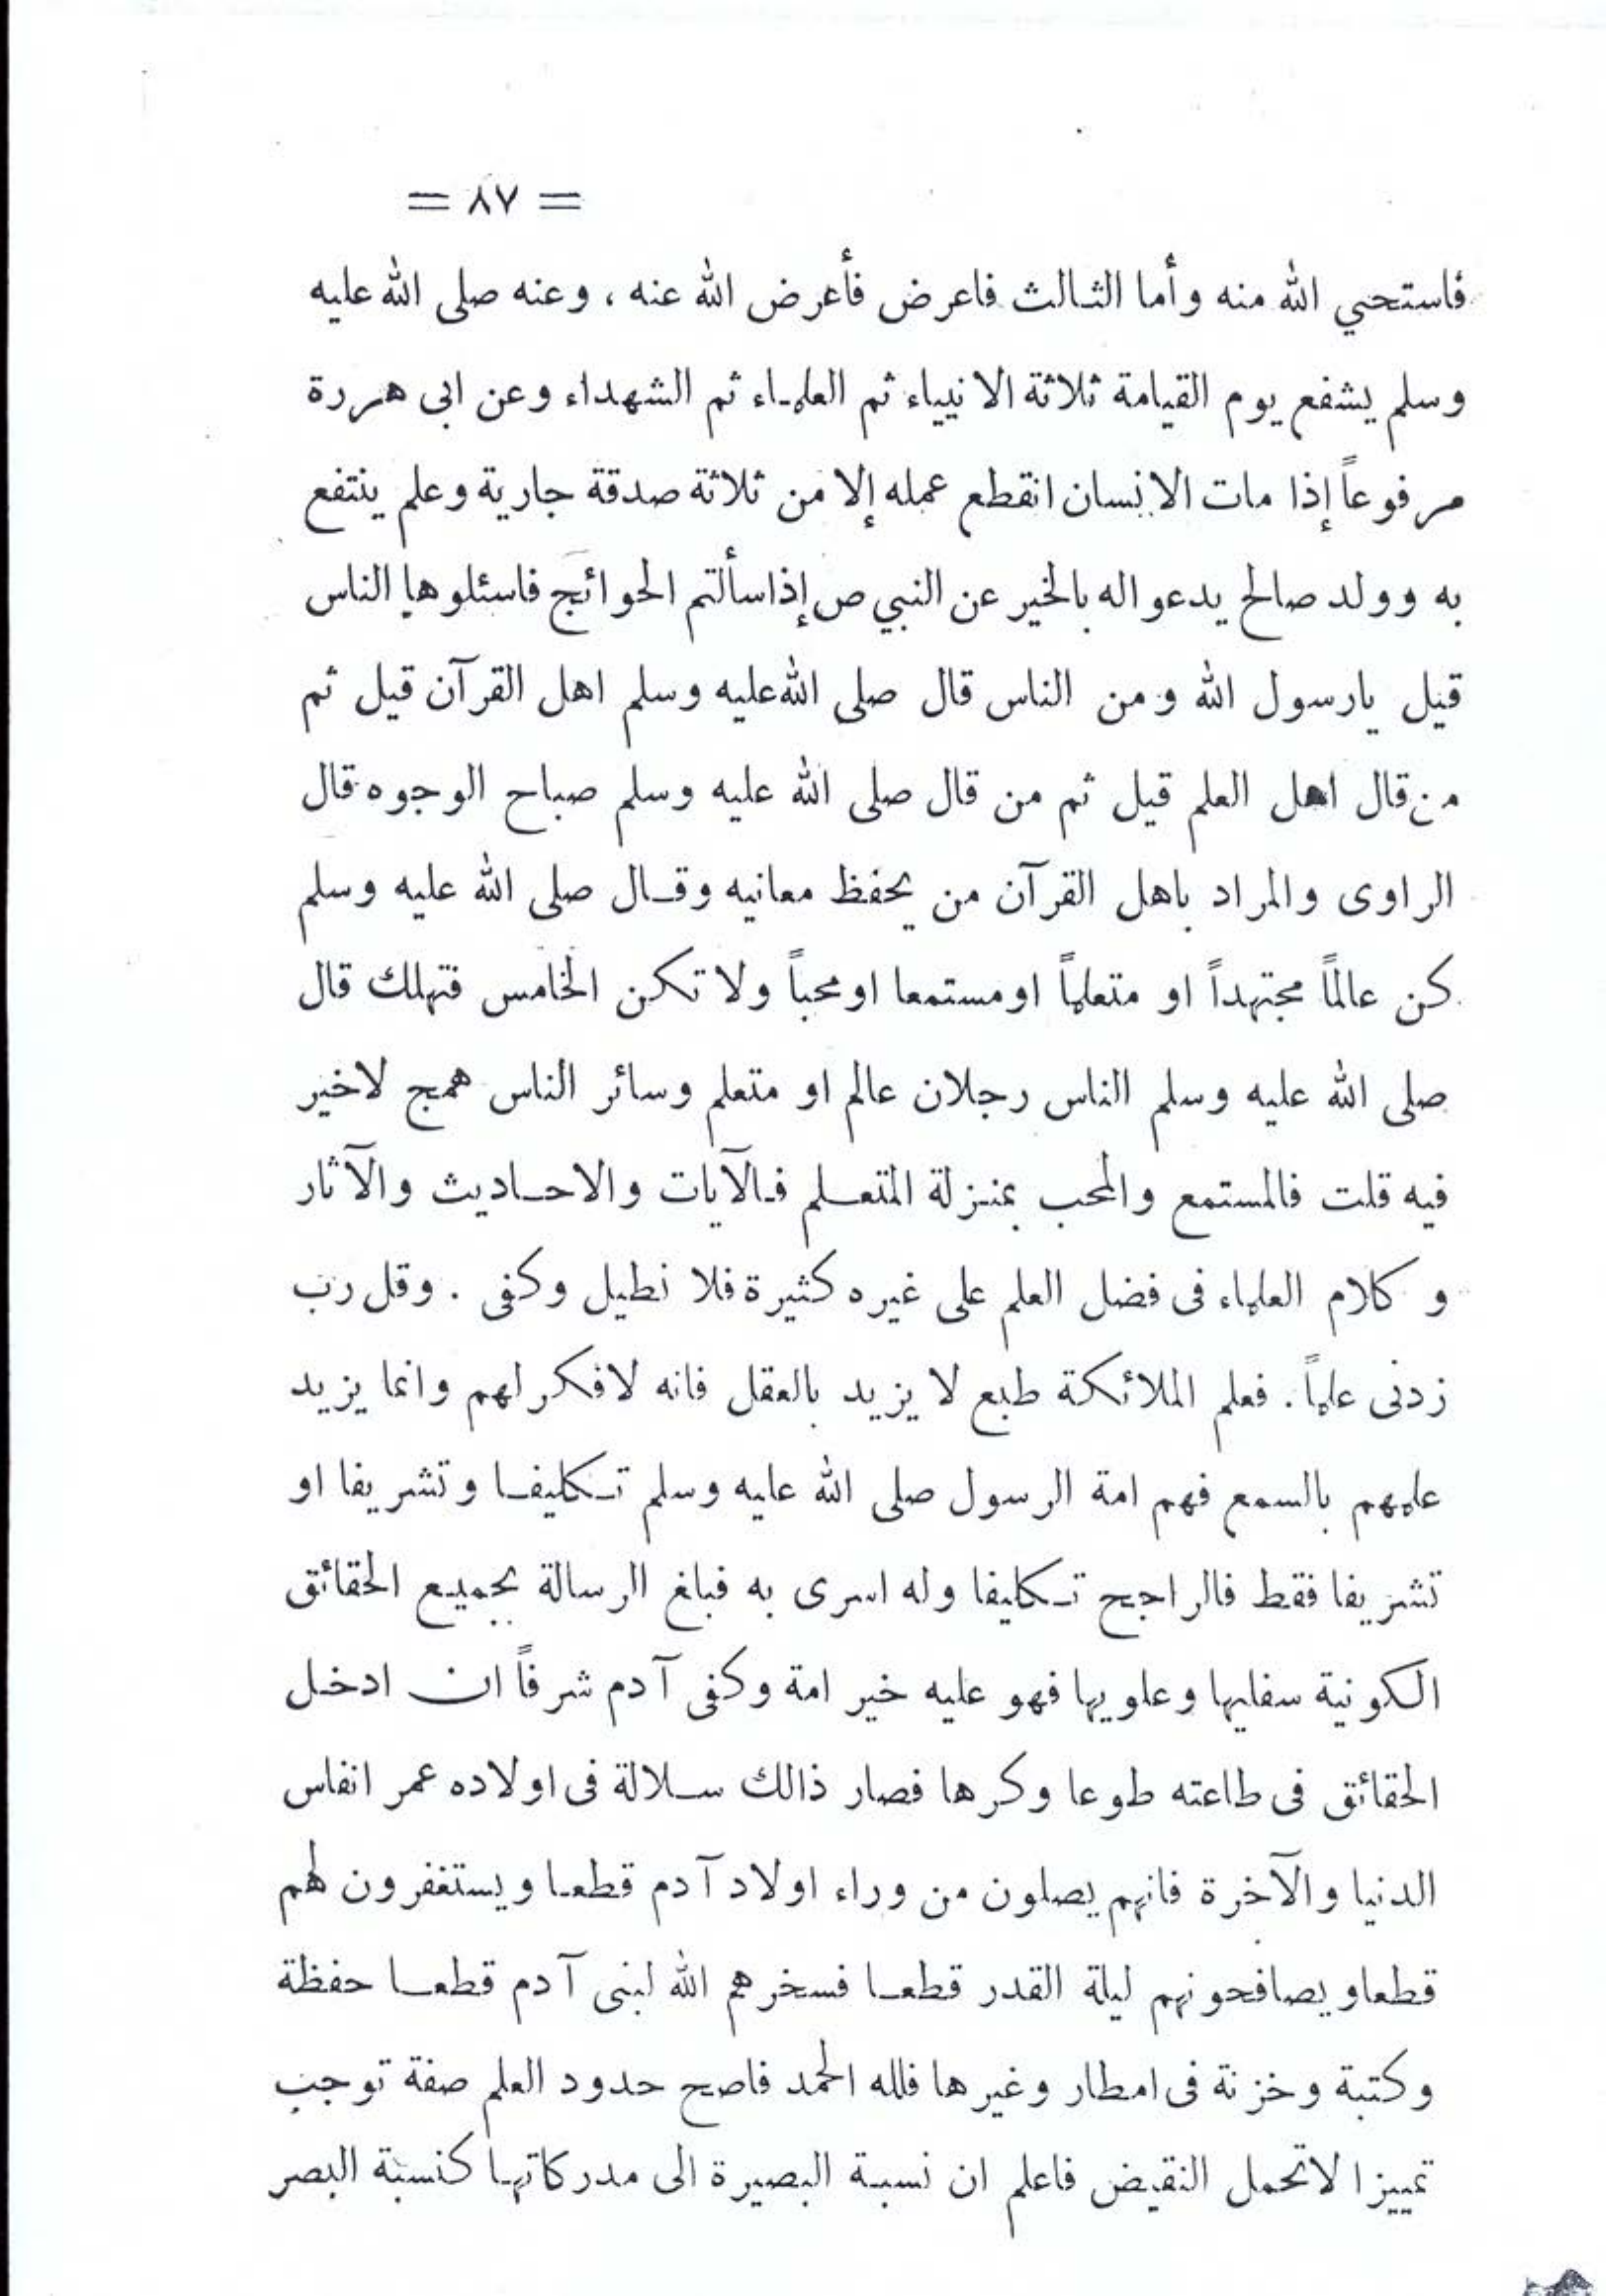 = ٨٧ =
فاستحي الله منه وأما الثالث فاعرض فأعرض الله عنه ، وعنه صلى الله عليه
وسلم يشفع يوم القيامة ثلاثة الانبياء ثم العلماء ثم الشهداء وعن ابى هررة
مرفوعاً إذا مات الانسان انقطع عمله إلا من ثلاثة صدقة جارية وعلم ينتفع
به وولد صالح يدعواله بالخير عن النبي ص إذاسألتم الحوائج فاسئلوها الناس
قيل يارسول الله ومن الناس قال صلى الله عليه وسلم اهل القرآن قيل ثم
من قال اهل العلم قيل ثم من قال صلى الله عليه وسلم صباح الوجوه قال
الراوى والمراد باهل القرآن من يحفظ معانيه وقال صلى الله عليه وسلم
كن عالماً مجتهداً او متعلماً اومستمعا اومحباً ولا تكن الخامس فتهلك قال
صلى الله عليه وسلم الناس رجلان عالم او متعلم وسائر الناس همج لاخير
فيه قلت فالمستمع والمحب بمنزلة المتعلم فالآيات والاحاديث والآثار
و كلام العلماء فى فضل العلم على غيره كثيرة فلا نطيل وكفى . وقل رب
زدنى علماً . فعلم الملائكة طبع لا يزيد بالعقل فانه لافكر لهم وانما يزيد
علمهم بالسمع فهم امة الرسول صلى الله عليه وسلم تكليفا وتشريفا او
تشريفا فقط فالراجح تكليفا وله اسرى به فبلغ الرسالة بجميع الحقائق
الكونية سفليها وعلويها فهو عليه خير امة وكفى آدم شرفاً ان ادخل
الحقائق فى طاعته طوعا وكرها فصار ذالك سلالة فى اولاده عمر انفاس
الدنيا والآخرة فانهم يصلون من وراء اولاد آدم قطعا ويستغفرون لهم
قطعاو يصافحونهم ليلة القدر قطعا فسخرهم الله لبنى آدم قطعا حفظة
وكتبة وخزنة فى امطار وغيرها فلله الحمد فاصح حدود العلم صفة توجب
تمييزا لاتحمل النقيض فاعلم ان نسبة البصيرة الى مدركاتها كنسبة البصر